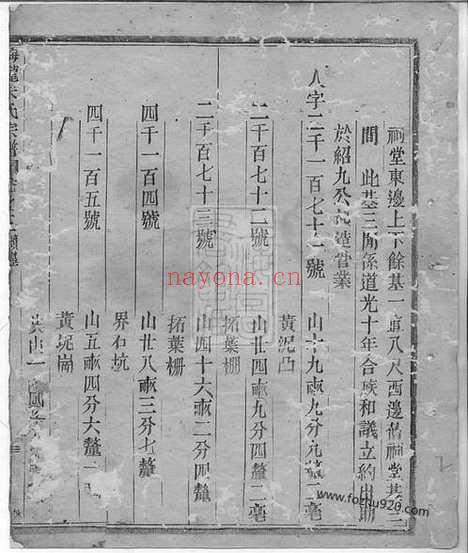 祠堂東邊上下餘基一直八尺西邊舊祠堂基三
間 此基三間係道光十年合族和議立約出助
於紹九公祀造營業
八字二千一百七十一號 山十九畝九分九釐二毫
黃泥凸
二千一百七十二號 山廿四畝九分四釐二毫
拓葉棚
二千一百七十三號 山四十六畝二分四釐
拓葉棚
四千一百四號 山廿八畝三分七釐
界石坑
四千一百五號 山五畝四分六釐
黃坭崗
共山一
氏宗譜
nayona.cn
www.fozhu920.com